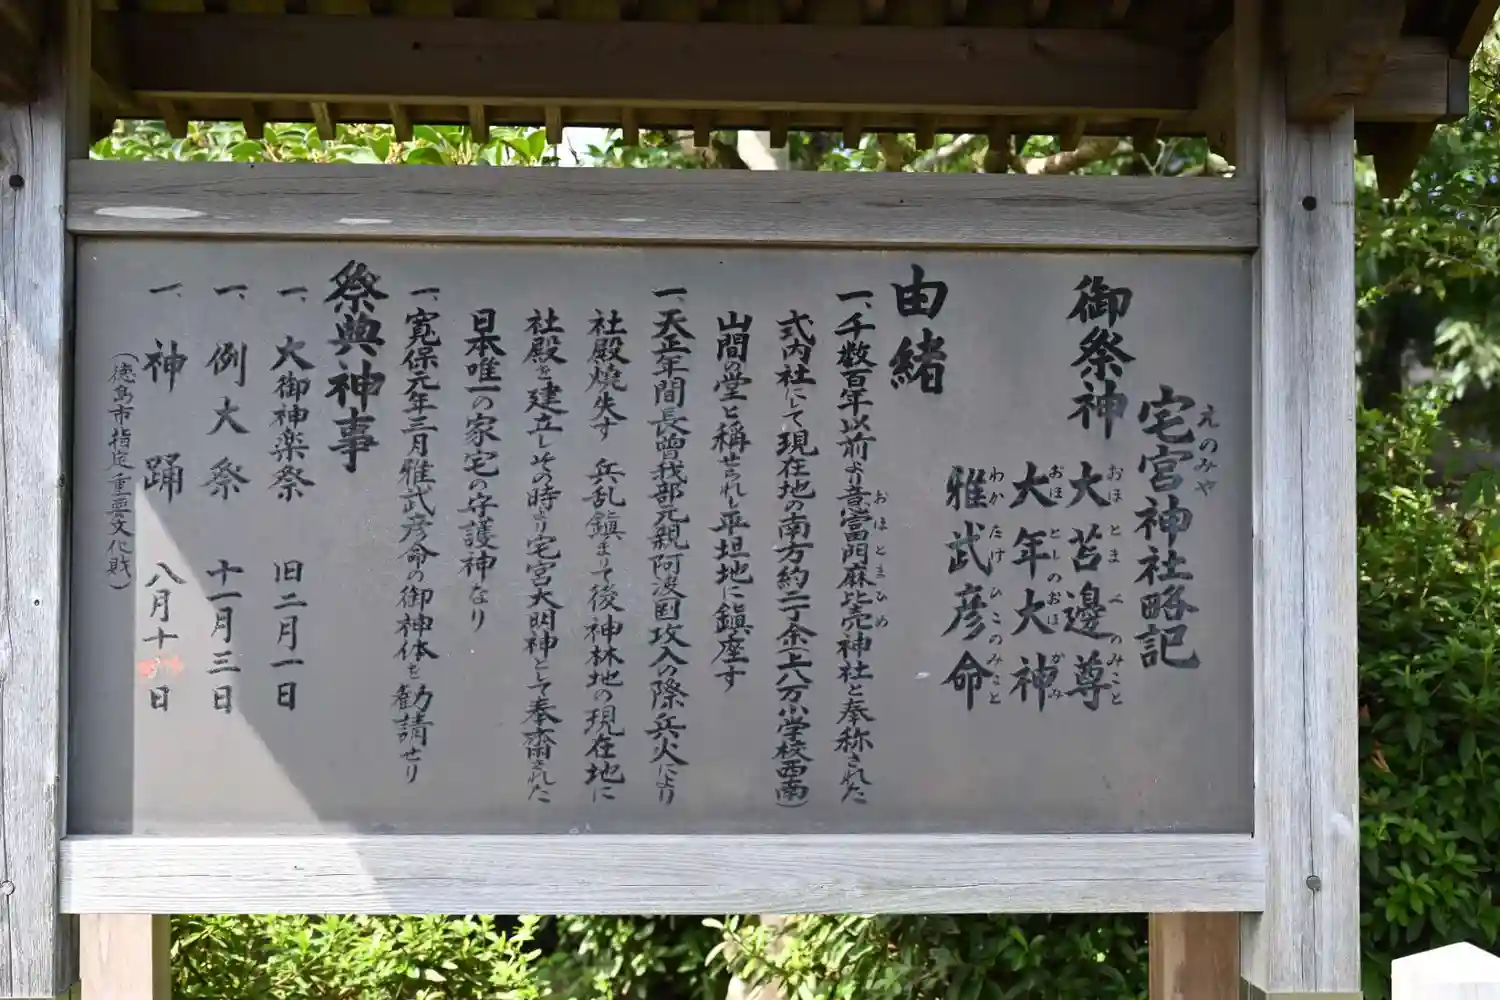 宅宮神社略記
えのみや
御祭神 大苫邊尊
おほとまべのみこと
大年大神
おほとしのおほかみ
雅武彦命
わかたけひこのみこと
由緒
一、千数百年以前より意富門麻比売神社と奉称された
おほとまひめ
式内社にして現在地の南方約二丁余(上八万小学校西南)
山間の堂と稱せられし平坦地に鎮座す
一、天正年間長曽我部元親阿波国攻入の際兵火により
社殿焼失す 兵乱鎮まりて後神林地の現在地に
社殿を建立しその時より宅宮大明神として奉齋された
日本唯一の家宅の守護神なり
一、寛保元年三月雅武彦命の御神体を勧請せり
祭典神事
一、大御神楽祭 旧二月一日
一、例大祭 十一月三日
一、神踊 八月十 日
(徳島市指定重要文化財)